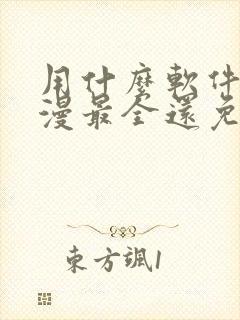 用什麼軟件
漫最全還免
東方颯1